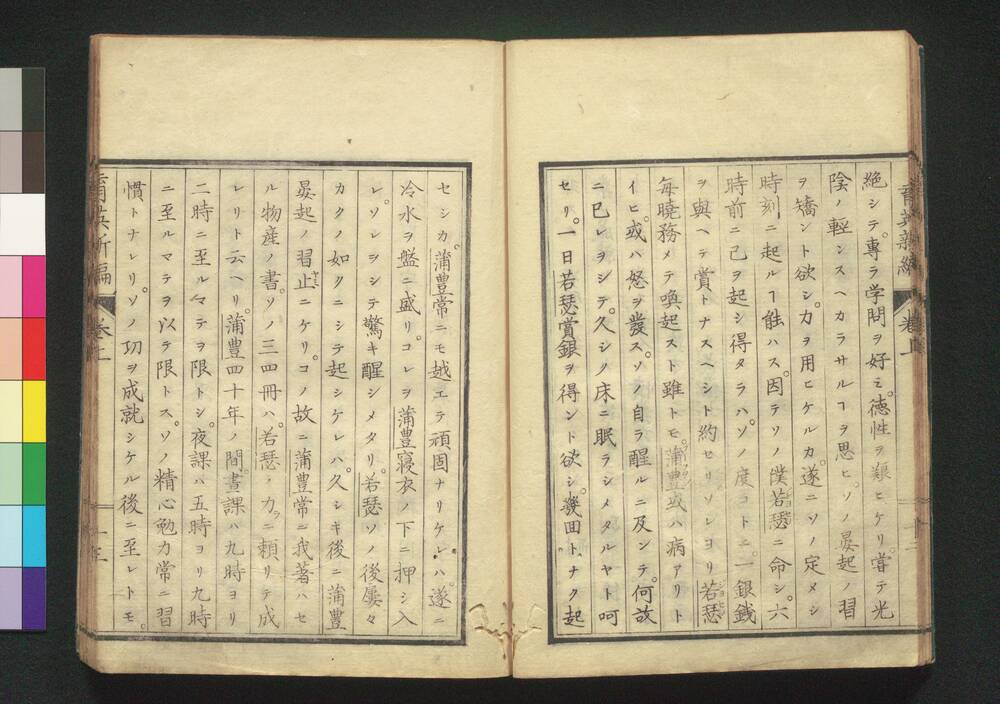 絶シテ。専ラ学問ヲ好ミ。徳性ヲ艱ヒケリ。嘗テ光
陰ノ輕ンスヘカラサルヿヲ思ヒ。ソノ晏起ノ習
ヲ矯ント欲シ。力ヲ用ヒケルカ。遂ニソノ定メシ
時刻ニ起ルヿ能ハス。因テソノ僕若瑟ニ命シ。六
時前ニ己ヲ起シ得タラハ。ソノ度コトニ。一銀錢
ヲ與ヘテ賞トナスヘシト約セリソレヨリ若瑟
毎曉務メテ喚起スト雖トモ。蒲豊或ハ病アリト
イヒ。或ハ怒ヲ發ス。ソノ自ラ醒ルニ及ンテ。何故
ニ已レヲシテ。久シク床ニ眠ラシメタルヤト呵
セリ。一日若瑟賞銀ヲ得ント欲シ。幾回トナク起
セシカ。蒲豊常ニモ越エテ頑固ナリケレハ。遂ニ
冷水ヲ盤ニ盛リ。コレヲ蒲豊寢衣ノ下ニ押シ入
レ。ソレヲシテ驚キ醒シメタリ。若瑟ソノ後屢々
カクノ如クニシテ起シケレハ。久シキ後ニ蒲豊
晏起ノ習止ニケリ。コノ故ニ蒲豊常ニ我著ハセ
ル物産ノ書。ソノ三四冊ハ。若瑟ノ力ニ頼リテ成
レリト云ヘリ。蒲豊四十年ノ間。晝課ハ九時ヨリ
二時ニ至ルマテヲ限トシ。夜課ハ五時ヨリ九時
ニ至ルマテヲ以テ限トス。ソノ精心勉力常ニ習
慣トナレリ。ソノ功ヲ成就シケル後ニ至レトモ。